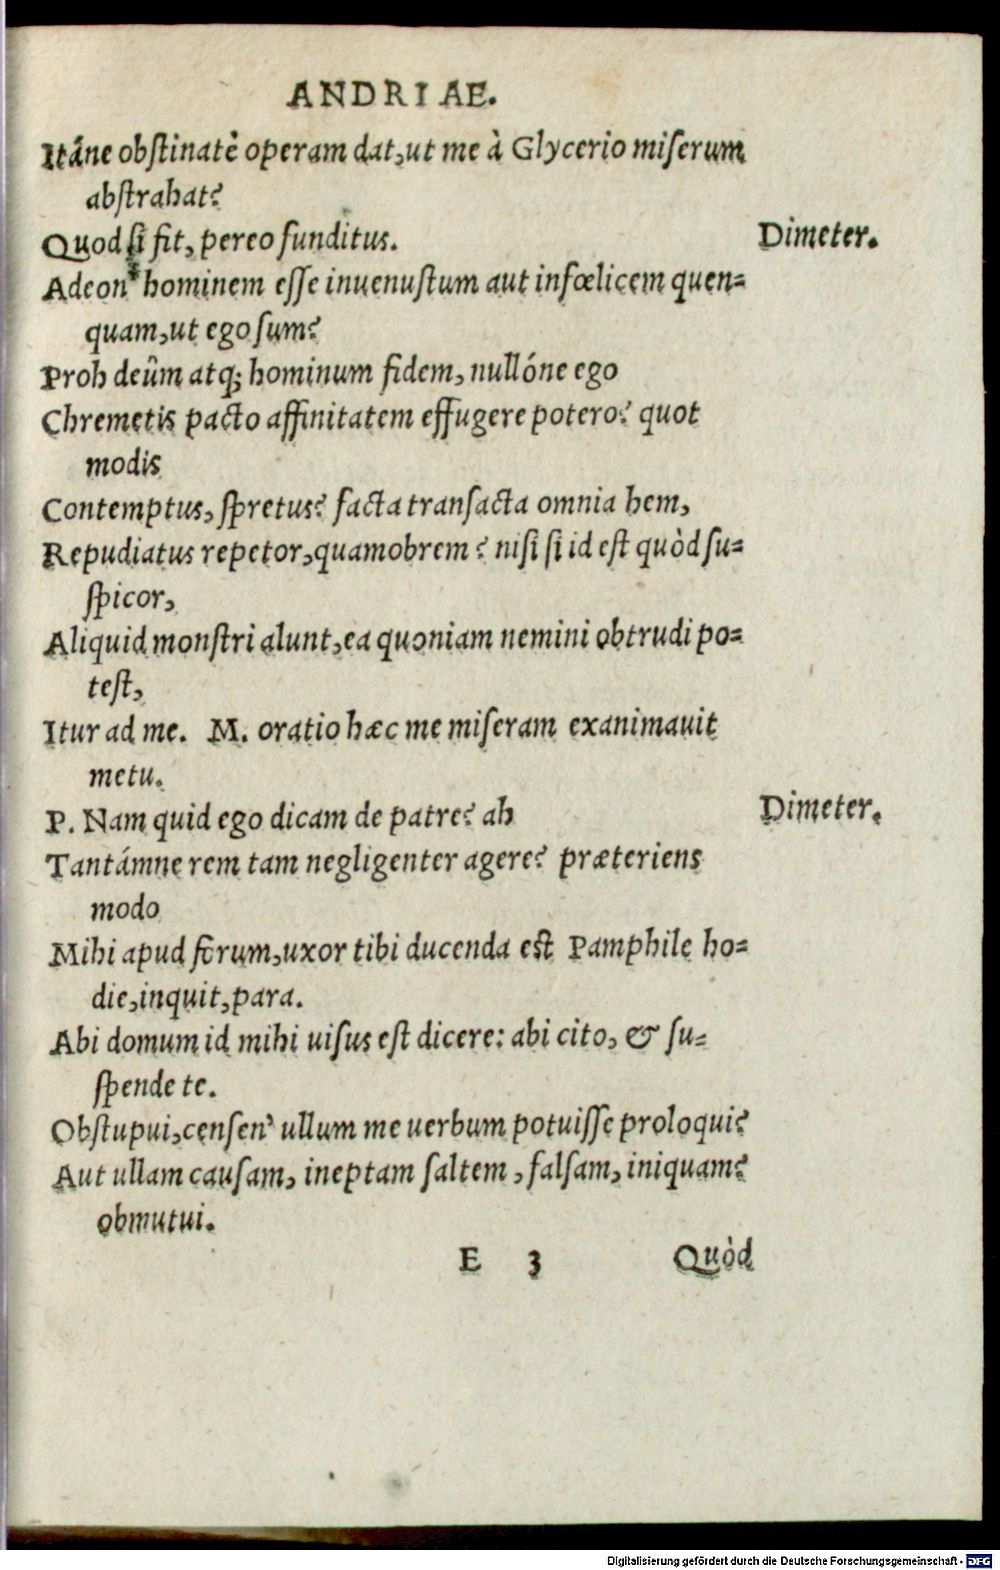 ANDRIAE.
Itáne obstinatè operam dat, ut me à Glycerio miserum
abstrahat?
Quod si fit, pereo funditus. Dimeter.
Adeon' hominem esse inuenustum aut infœlicem quen-
quam, ut ego sum?
Proh deûm atq; hominum fidem, nullóne ego
Chremetis pacto affinitatem effugere potero? quot
modis
Contemptus, spretus? facta transacta omnia hem,
Repudiatus repetor, quamobrem? nisi si id est quòd su-
spicor,
Aliquid monstri alunt, ea quoniam nemini obtrudi po-
test,
Itur ad me. M. oratio hæc me miseram exanimauit
metu.
P. Nam quid ego dicam de patre? ah Dimeter.
Tantámne rem tam negligenter agere? præteriens
modo
Mihi apud forum, uxor tibi ducenda est Pamphile ho-
die, inquit, para.
Abi domum id mihi uisus est dicere: abi cito, & su-
spende te.
Obstupui, censen' ullum me uerbum potuisse proloqui?
Aut ullam causam, ineptam saltem, falsam, iniquam?
obmutui.
E 3 Quòd
Digitalisierung gefördert durch die Deutsche Forschungsgemeinschaft - DFG